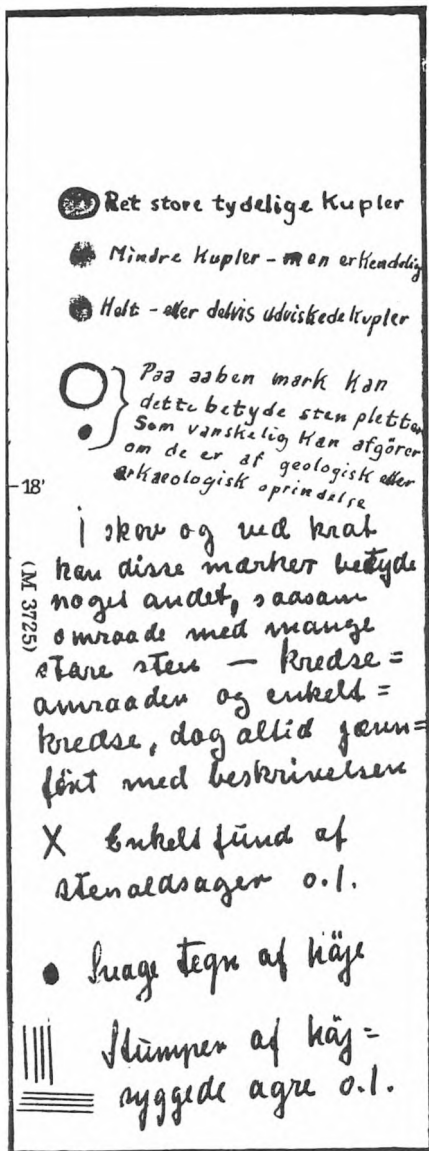 Ret store tydelige Kupler
Mindre Kupler - men erkendelig
Helt - eller delvis udviskede kupler
Paa aaben mark kan
dette betyde sten pletter
Som vanskelig kan afgörer
om de er af geologisk eller
arkaeologisk oprindelse
18'
(M 3725)
i skov og ved krat
kan disse mærker betyde
noget andet, saasom
omraade med mange
store sten — kredse=
omraader og enkelt=
kredse, dog altid jævn=
fört med beskrivelsen
X Enkelt fund af
stenaldsager o.l.
Svage tegn af häje
Stumper af häj=
ryggede agre o.l.